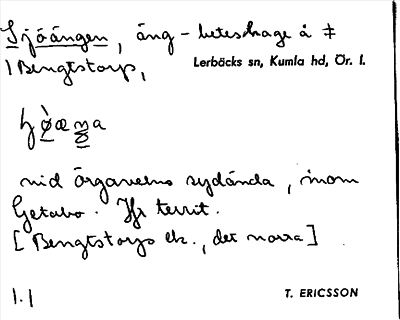 Sjöängen, äng - beteshage å ‡
1 Bengtstorp,
Lerbäcks sn, Kumla hd, Ör. l.
vid Örgavelns sydända, inom
Getabo. Jfr territ.
[Bengtstorps ek., det norra]
1.1
T. ERICSSON